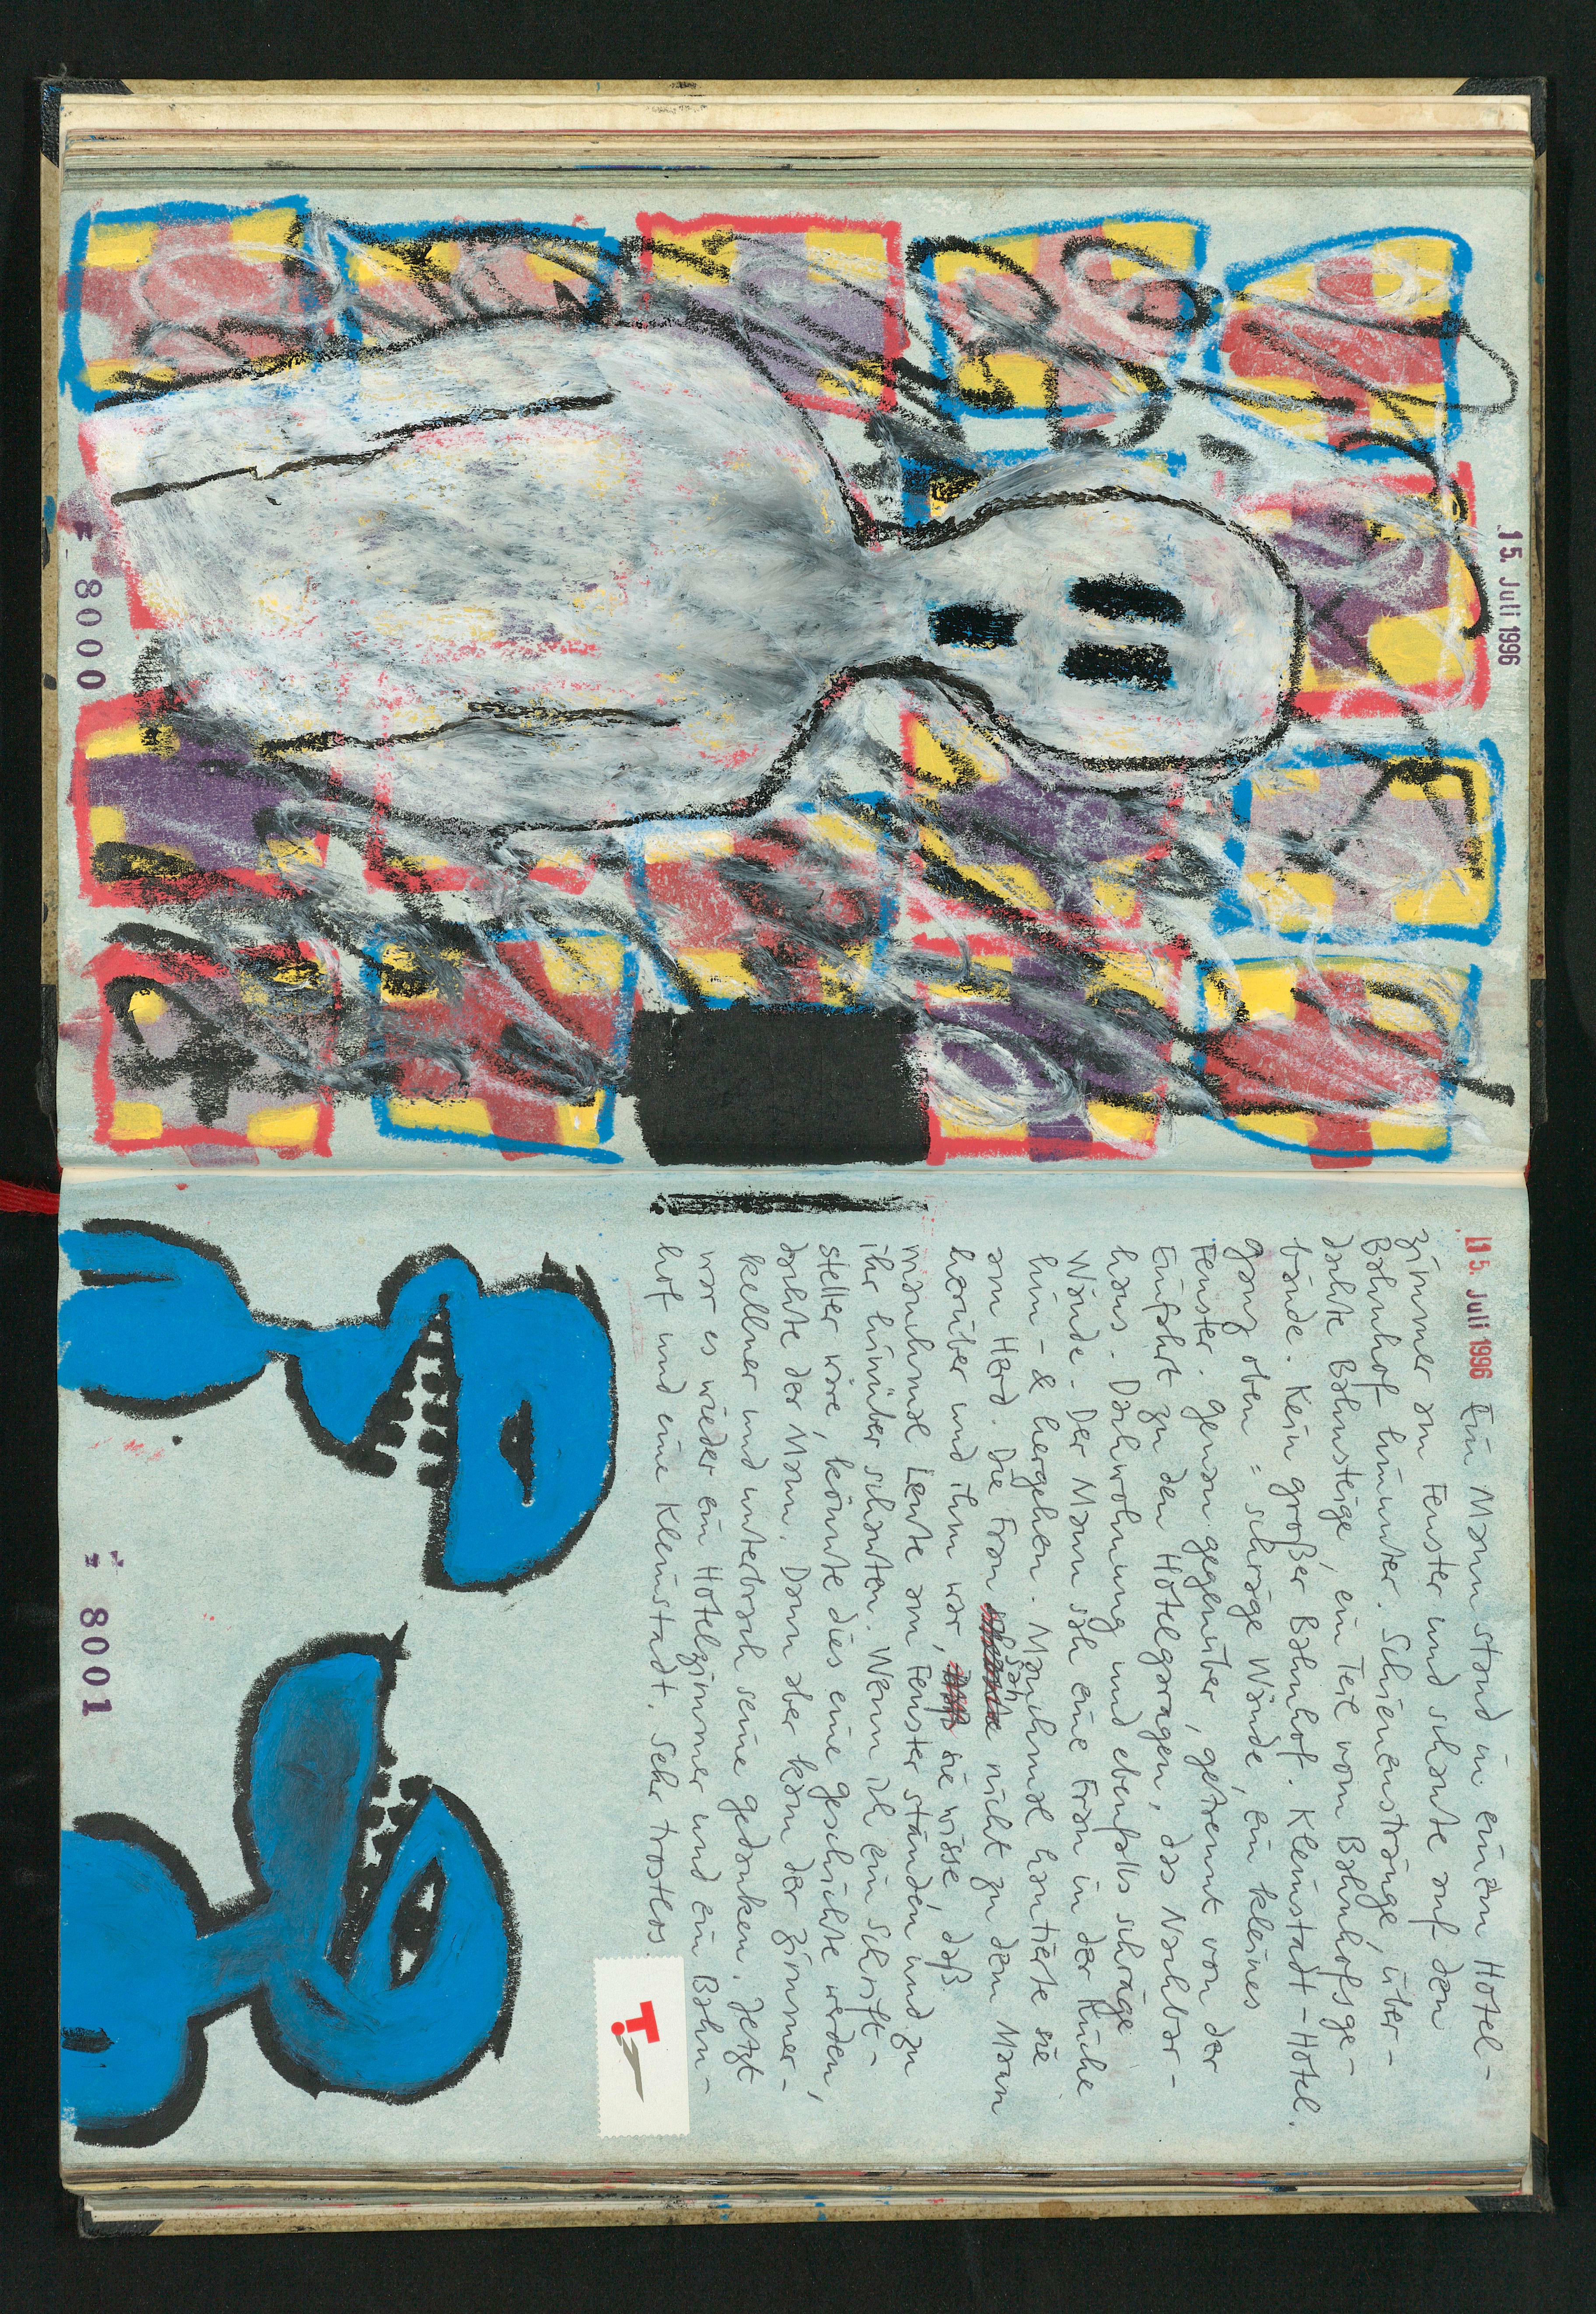 15. Juli 1996
8000
15. Juli 1996 Ein Mann stand in einem Hotel-
zimmer am Fenster und schaute auf den
Bahnhof hinunter. Schienenstränge, über-
dachte Bahnsteige, ein Teil vom Bahnhofsge-
bäude. Kein großer Bahnhof. Kleinstadt-Hotel.
ganz oben = schräge Wände, ein kleines
Fenster. genau gegenüber, getrennt von der
Einfahrt zu den Hotelgaragen, das Nachbar-
haus. Dachwohnung und ebenfalls schräge
Wände. Der Mann sah eine Frau in der Küche
hin- & hergehen. Manchmal hantierte sie
am Herd. Die Frau sah nicht zu dem Mann
herüber und ihm war, sie wisse, daß
manchmal Leute am Fenster ständen und zu
ihr hinüber schauten. Wenn ich ein Schrift-
steller wäre, könnte dies eine geschichte werden,
dachte der Mann. Dann aber kam der Zimmer-
kellner und unterbrach seine gedanken. Jetzt
war es wieder ein Hotelzimmer und ein Bahn-
hof und eine Kleinstadt. Sehr trostlos.
T
8001